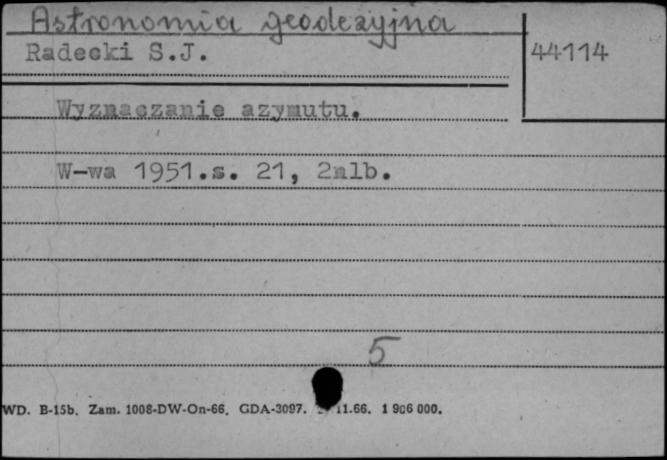 Astronomia geodezyjna
Radecki S.J.
44114
Wyznaczanie azymutu.
W-wa 1951.s. 21, 2nlb.
5
WD. B-15b. Zam. 1008-DW-On-66. GDA-3097. 11.66. 1 906 000.